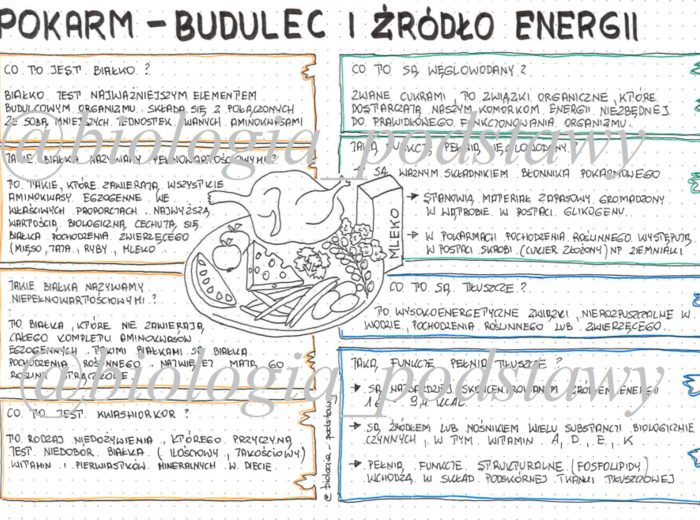 POKARM - BUDULEC I ŹRÓDŁO ENERGII
CO TO JEST BIAŁKO ?
BIAŁKO JEST NAJWAŻNIEJSZYM ELEMENTEM
BUDULCOWYM ORGANIZMU. SKŁADA SIĘ Z POŁĄCZONYCH
ZE SOBĄ MNIEJSZYCH JEDNOSTEK ZWANYCH AMINOKWASAMI
JAKIE BIAŁKA NAZYWAMY PEŁNOWARTOŚCIOWYMI?
TO TAKIE, KTÓRE ZAWIERAJĄ WSZYSTKIE
AMINOKWASY EGZOGENNE WE
WŁAŚCIWYCH PROPORCJACH. NAJWYŻSZĄ
WARTOŚCIĄ BIOLOGICZNĄ CECHUJĄ SIĘ
BIAŁKA POCHODZENIA ZWIERZĘCEGO
(MIĘSO, JAJA, RYBY, MLEKO
JAKIE BIAŁKA NAZYWAMY
NIEPEŁNOWARTOŚCIOWYMI ?
TO BIAŁKA, KTÓRE NIE ZAWIERAJĄ
CAŁEGO KOMPLETU AMINOKWASÓW
EGZOGENNYCH. TAKIMI BIAŁKAMI SĄ BIAŁKA
POCHODZENIA ROŚLINNEGO. NAJWIĘCEJ MAJĄ GO
ROŚLINY STRĄCZKOWE.
CO TO JEST KWASHIORKOR ?
TO RODZAJ NIEDOŻYWIENIA, KTÓREGO PRZYCZYNĄ
JEST NIEDOBÓR BIAŁKA (ILOŚCIOWY, JAKOŚCIOWY)
WITAMIN I PIERWIASTKÓW MINERALNYCH W DIECIE.
MLEKO
@biologia_podstawy
CO TO SĄ WĘGLOWODANY ?
ZWANE CUKRAMI, TO ZWIĄZKI ORGANICZNE, KTÓRE
DOSTARCZAJĄ NASZYM KOMÓRKOM ENERGII NIEZBĘDNEJ
DO PRAWIDŁOWEGO FUNKCJONOWANIA ORGANIZMU.
JAKĄ FUNKCJĘ PEŁNIĄ WĘGLOWODANY?
SĄ WAŻNYM SKŁADNIKIEM BŁONNIKA POKARMOWEGO
→ STANOWIĄ MATERIAŁ ZAPASOWY, GROMADZONY
W WĄTROBIE W POSTACI GLIKOGENU.
→ W POKARMACH POCHODZENIA ROŚLINNEGO WYSTĘPUJĄ
W POSTACI SKROBI (CUKIER ZŁOŻONY) NP ZIEMNIAKI
CO TO SĄ TŁUSZCZE ?
TO WYSOKOENERGETYCZNE ZWIĄZKI, NIEROZPUSZCZALNE W
WODZIE, POCHODZENIA ROŚLINNEGO LUB ZWIERZĘCEGO.
JAKĄ FUNKCJĘ PEŁNIĄ TŁUSZCZE ?
→ SĄ NAJBARDZIEJ SKONCENTROWANYM ŹRÓDŁEM ENERGII
1g 9,4 KCAL
→ SĄ ŹRÓDŁEM LUB NOŚNIKIEM WIELU SUBSTANCJI BIOLOGICZNIE
CZYNNYCH, W TYM WITAMIN A, D, E, K
→ PEŁNIĄ FUNKCJE STRUKTURALNE (FOSFOLIPIDY)
WCHODZĄ W SKŁAD PODSKÓRNEJ TKANKI TŁUSZCZOWEJ
@biologia_podstawy
@biologia_podstawy